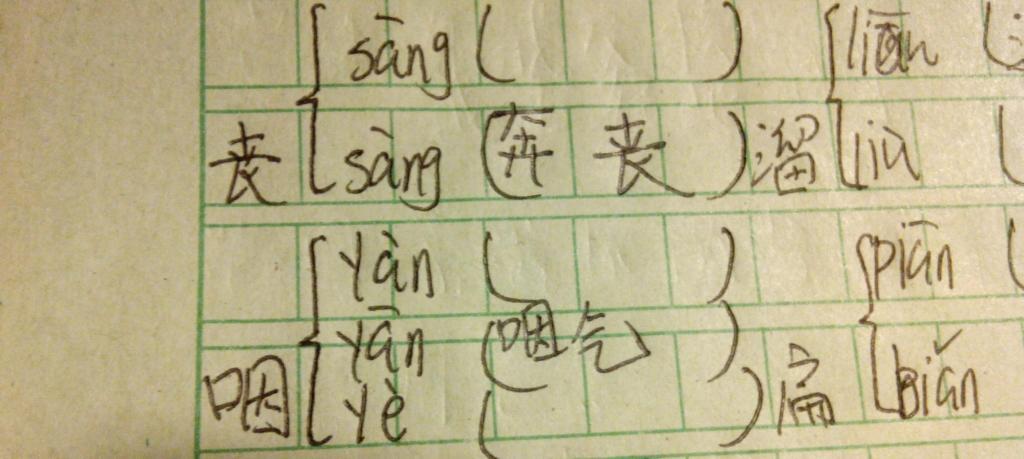 sāng ( ) liān (
丧 sàng (奔丧) 溜 liù (
yàn ( ) piān (
yān (咽气)
咽 yè ( ) 扁 biǎn